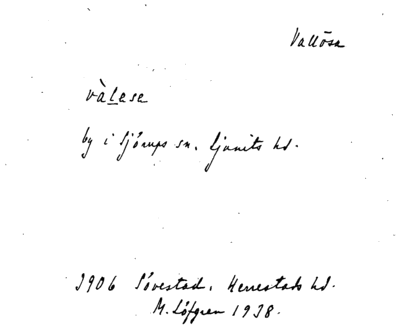 Vallösa
vàlese
by i Sjörups sn. Ljunits hd.
3906 Sövestad, Herrestads hd.
M. Löfgren 1938.